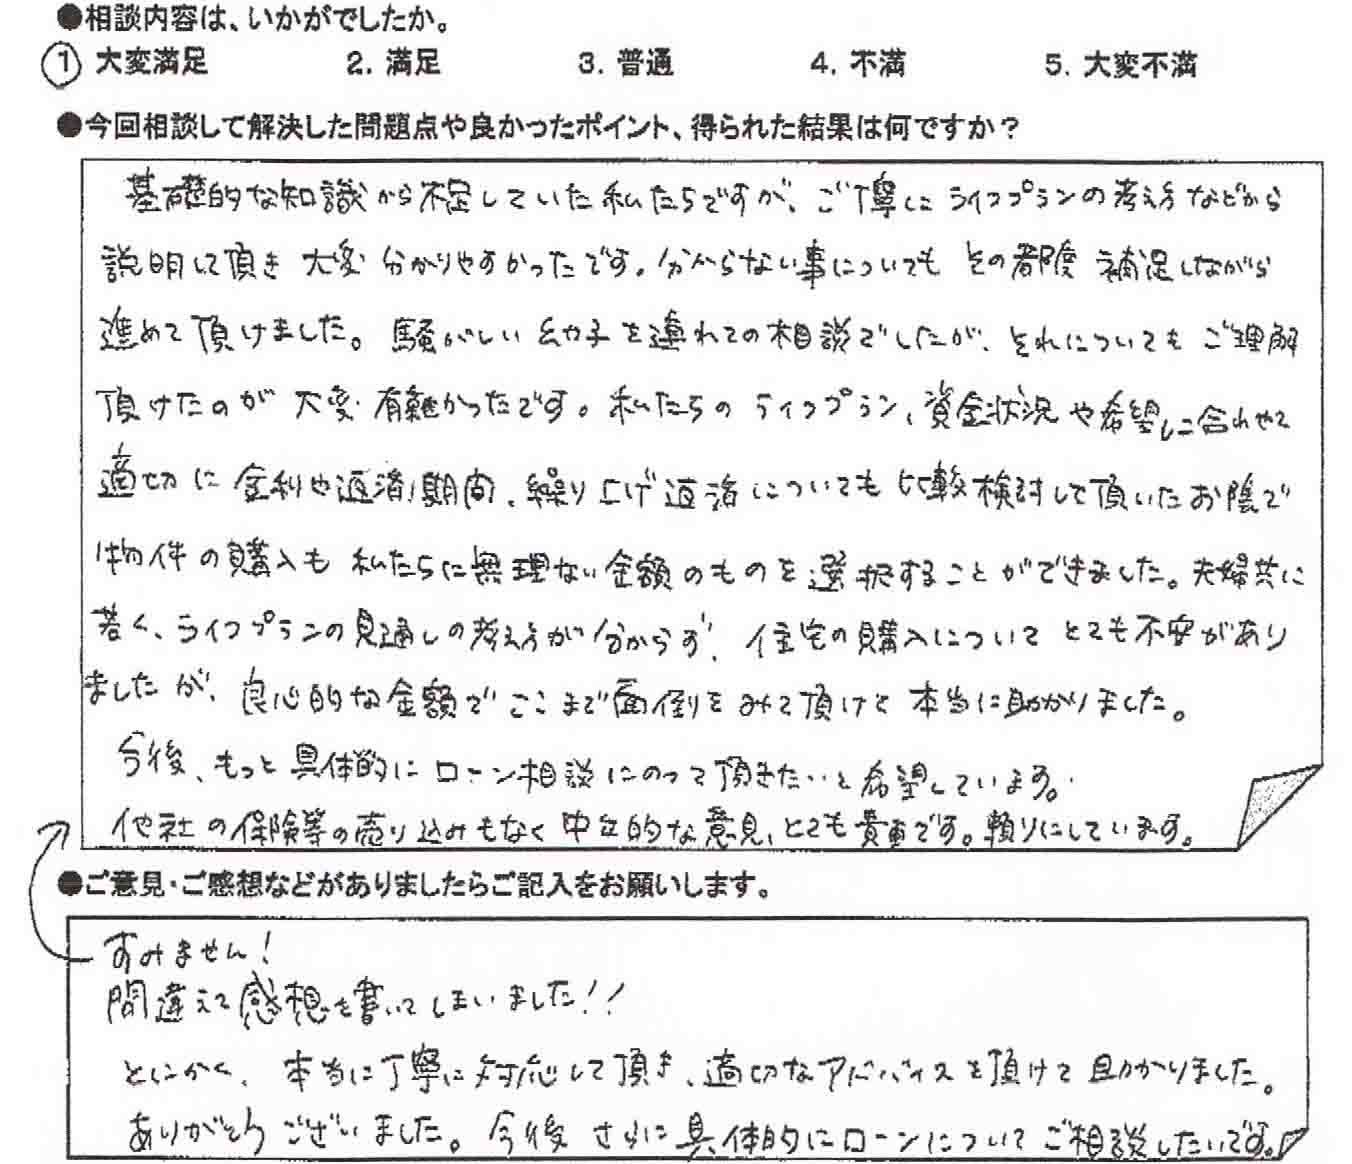 ●相談内容は、いかがでしたか。
① 大変満足 2. 満足 3. 普通 4. 不満 5. 大変不満
●今回相談して解決した問題点や良かったポイント、得られた結果は何ですか？
基礎的な知識から不足していた私たちですが、ご丁寧にライフプランの考え方などから
説明して頂き 大変 分かりやすかったです。分からない事についても その都度 補足しながら
進めて頂けました。騒がしい幼子を連れての相談でしたが、それについてもご理解
頂けたのが 大変 有難かったです。私たちのライフプラン、資金状況や希望に合わせて
適切に 金利や返済期間、繰り上げ返済についても比較検討して頂いたお陰で
物件の購入も 私たちに無理ない金額のものを選択することができました。夫婦共に
若く、ライフプランの見通しの考え方が分からず、住宅の購入についてとても不安があり
ましたが、良心的な金額でここまで面倒をみて頂けて 本当に助かりました。
今後、もっと具体的にローン相談にのって頂きたいと希望しています。
他社の保険等の売り込みもなく中立的な意見、とても貴重です。頼りにしています。
●ご意見・ご感想などがありましたらご記入をお願いします。
すみません！
間違えて感想を書いてしまいました！！
とにかく、本当に丁寧に対応して頂き、適切なアドバイスを頂けて助かりました。
ありがとうございました。今後 さらに具体的にローンについてご相談したいです。